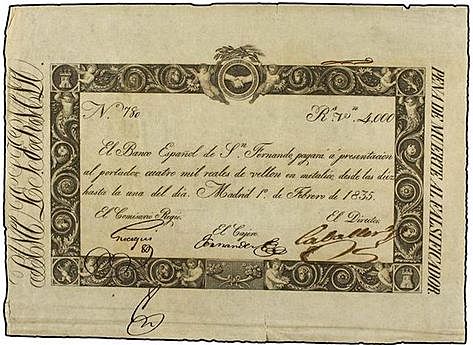 Nº 780 Rˢ Vⁿ 4,000
El Banco Español de Sⁿ Fernando pagará á presentacion
al portador cuatro mil reales de vellon en metalico, desde las diez
hasta la una del dia. Madrid 1º de Febrero de 1835.
El Comisario Regio. El Cajero El Director
Caballero
PENA DE MUERTE AL FALSIFICADOR.